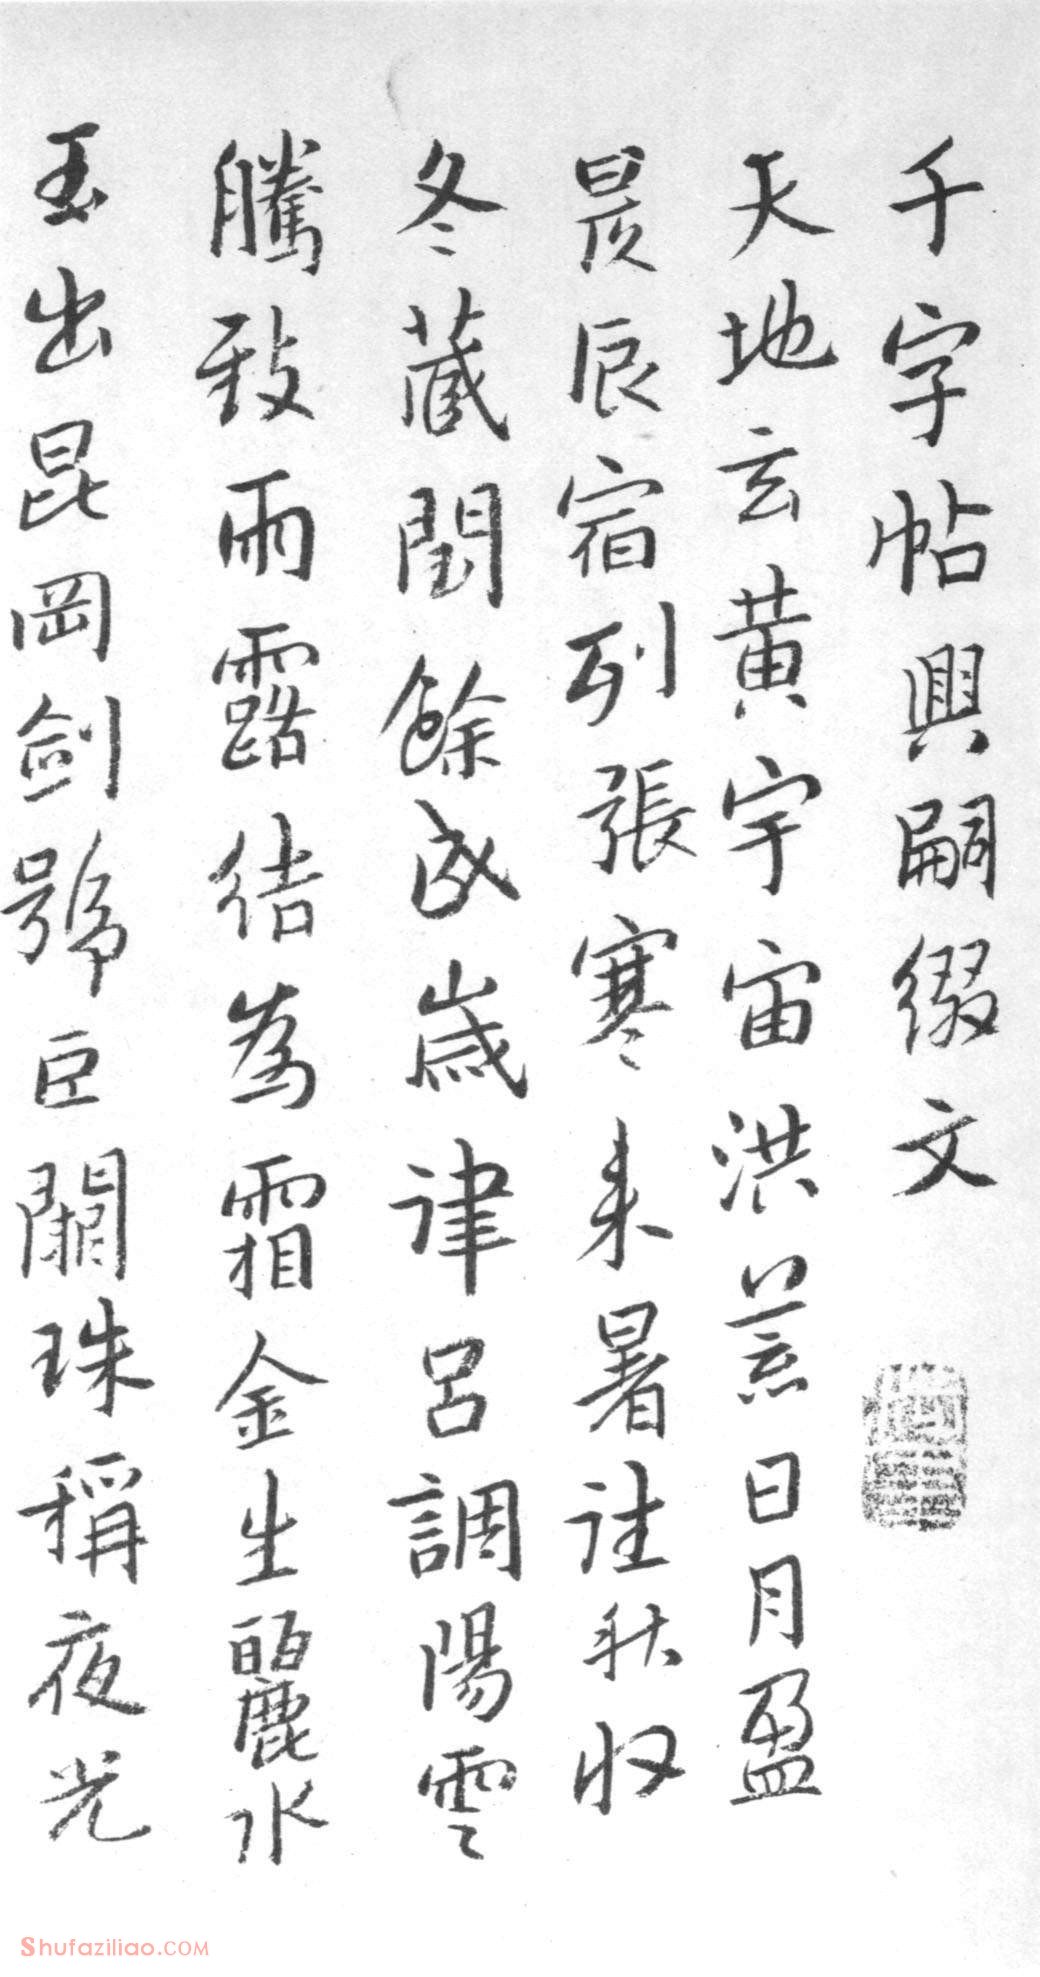 千字帖興嗣綴文
天地玄黃宇宙洪荒日月盈
昃辰宿列張寒来暑往秋收
冬藏閏餘成歲律呂調陽雲
騰致雨露結為霜金生麗水
玉出昆岡劍號巨闕珠稱夜光
Shufaziliao.COM